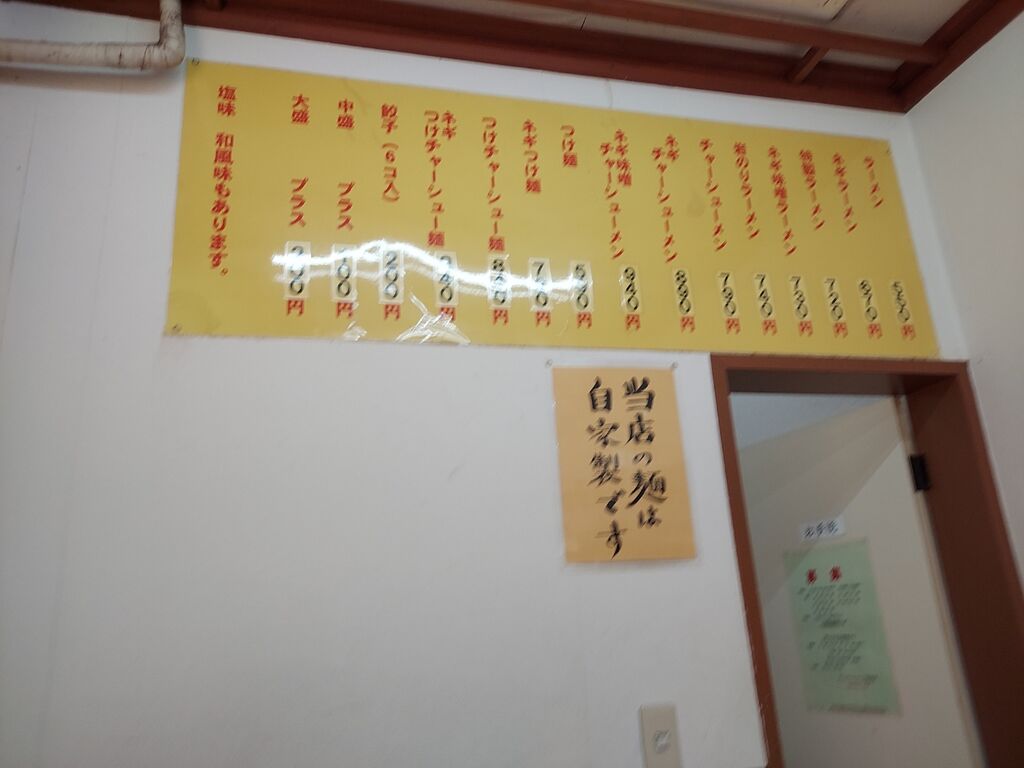 ラーメン 550円
ネギラーメン 670円
特製ラーメン 720円
ネギ味噌ラーメン 730円
岩のりラーメン 740円
チャーシューメン 790円
ネギチャーシューメン 890円
ネギ味噌チャーシューメン 940円
つけ麺 590円
ネギつけ麺 740円
つけチャーシュー麺 円
ネギつけチャーシュー麺 940円
餃子(6コ入) 200円
中盛 プラス 100円
大盛 プラス 200円
塩味 和風味もあります。
当店の麺は
自家製です
お手洗
募集